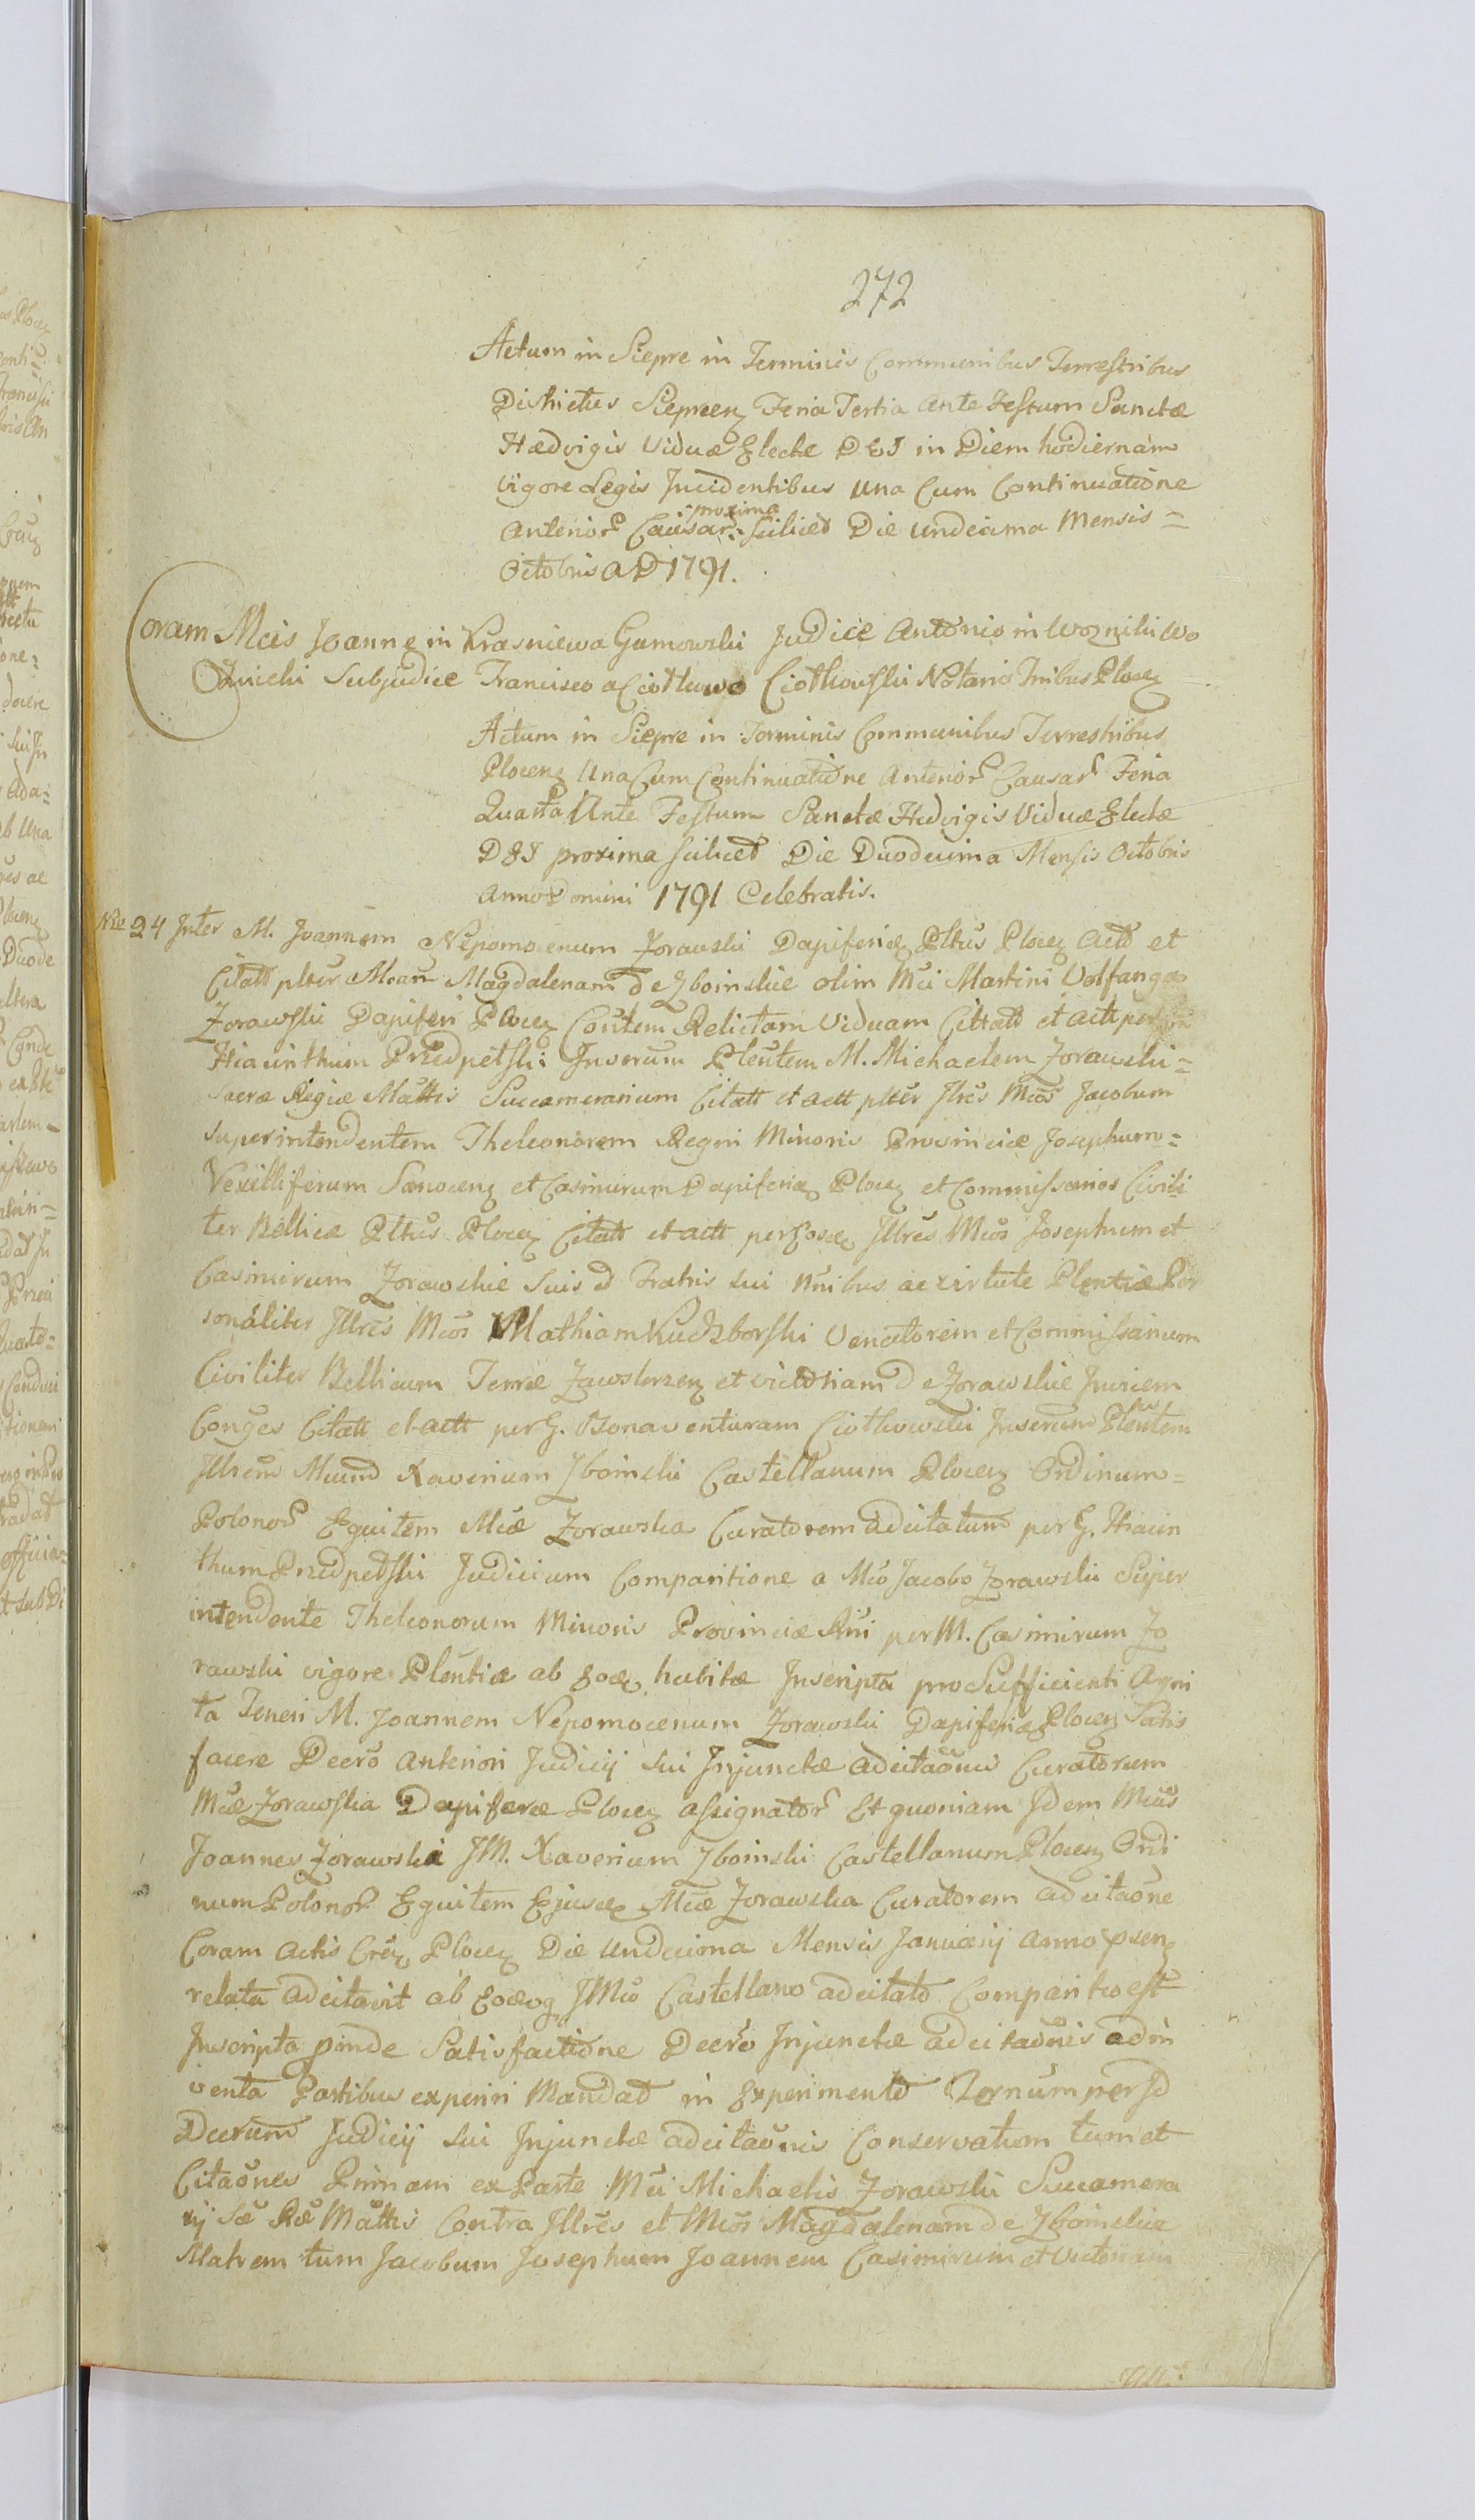 272
Actum in Siepre in Terminis Communibus Terrestribus
Districtus Siepreen Feria Tertia Ante Festum Sanctæ
Hædvigis Viduæ Electæ D E I in Diem hodiernam
Vigore Legis Incidentibus una Cum Continuatione
proxima
Anterior Causar. Scilicet Die Undecima Mensis =
Octobris A D 1791.
Coram Mcis Joanne in Krasniewa Gumowski Judice Antonio in Woznikiwo
Subjudice Francisco a Ciotkowo Ciotkowski Notario Tribus Plocen
Actum in Siepre in Terminis Communibus Terrestribus
Plocen Una Cum Continuatione Anterior Causar Feria
Quarta Ante Festum Sanctæ Hedvigis Viduæ Electæ
D E I proxima scilicet Die Duodecima Mensis Octobris
Anno Domini 1791 Celebratis.
Nro 24 Inter M. Joannem Nepomocenum Zorawski Dapiferid Pltus Plocen Actt et
Citatt plter Mcam Magdalenam de Zboinskie olim Mci Martini Volfanga
Zorawski Dapiferi Plocen Contem Relictam Viduam Citatt et actt per
Hiacinthum Przedpetski Inserum Plentem M. Michaelem Zorawski =
Sacræ Regiæ Mattis Succamerarium Citatt et actt plter Illres Mcos Jacobum
Superintendentem Theleonorem Regni Minoris Provinciæ Josephum =
Vexilliferum Sanocen et Casimirum Dapiferid Plocen et Commissarios Civili
ter Bellicæ Pltus Plocen Citatt et actt per Eosd Illres Mcos Josephum et
Casimirum Zorawskie suis et Fratris sui nnibus ac virtute Plentiæ Per
sonaliter Illres Mcos Mathiam Kuczborski Venatorem et Commissarium
Civiliter Bellicum Terræ Zawskrzen et Victoriam de Zorawskie Invicem
Conges Citatt et actt per G. Bonaventuram Ciotkowski Inserum Plentem
Illrem Mcum Xaverium Zboinski Castellanum Plocen Ordinum =
Polonor Equitem Mcæ Zorawska Curatorem adcitatum per G. Hiacin
thum Przedpetski Judicium Comparitione a Mco Jacobo Zorawski Super
intendente Theleonorum Minoris Provinciæ Rni per M. Casimirum Zo
rawski vigore Plentiæ ab Eod habitæ Inscripta pro Sufficienti Agni
ta Teneri M. Joannem Nepomocenum Zorawski Dapiferid Plocen Satis
facere Decro Anteriori Judicij sui Injunctæ adcitaonis Curatorum
Mcæ Zorawska Dapiferæ Plocen assignator Et quoniam Idem Mcus
Joannes Zorawska IM. Xaverium Zboinski Castellanum Plocen Ordi
num Polonor Equitem Ejusd Mcæ Zorawska Curatorem adcitaone
Coram Actis Plocen Die Undecima Mensis Januarij Anno psen
relata adcitavit ab Eodog IMco Castellano adcitato Comparitio est
Inscripta pinde Satisfactione Decro Injunctæ adcitaonis adin
venta Partibus experiri Mandat in Experimento Ternum per Id
Decrum Judicij sui Injunctæ adcitaonis Conservatum tum et
Citaones Primam ex Parte Mci Michaelis Zorawski Succamera
rij Sæ Ræ Mattis Contra Illres et Mcos Magdalenam de Zboinskie
Matrem tum Jacobum Josephum Joannem Casimirum et Victoriam